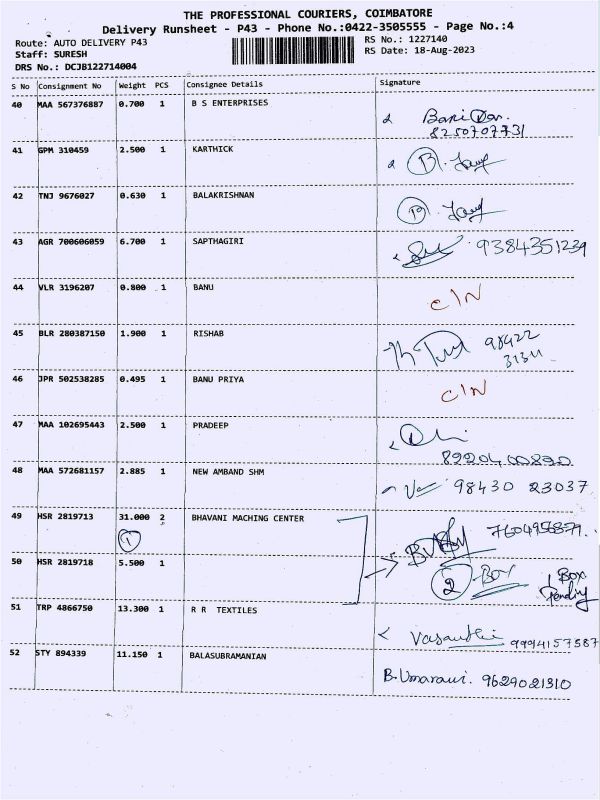 THE PROFESSIONAL COURIERS, COIMBATORE
Delivery Runsheet - P43 - Phone No.:0422-3505555 - Page No.:4
Route: AUTO DELIVERY P43 RS No.: 1227140
Staff: SURESH RS Date: 18-Aug-2023
DRS No.: DCJB122714004
S No Consignment No Weight PCS Consignee Details Signature
40 MAA 567376887 0.700 1 B S ENTERPRISES
8250707731
41 GPM 310459 2.500 1 KARTHICK
42 TNJ 9676027 0.630 1 BALAKRISHNAN
43 AGR 700606059 6.700 1 SAPTHAGIRI 9384351239
44 VLR 3196207 0.800 1 BANU C/N
45 BLR 280387150 1.900 1 RISHAB 98422
46 JPR 502538285 0.495 1 BANU PRIYA C/N
47 MAA 102695443 2.500 1 PRADEEP
48 MAA 572681157 2.885 1 NEW AMBAND SHM 98430 23037
49 HSR 2819713 31.000 2 BHAVANI MACHING CENTER
1
50 HSR 2819718 5.500 1 2 Box 1 Box
Pending
51 TRP 4866750 13.300 1 R R TEXTILES Vasanthi 9994157587
52 STY 894339 11.150 1 BALASUBRAMANIAN B. 9629021310